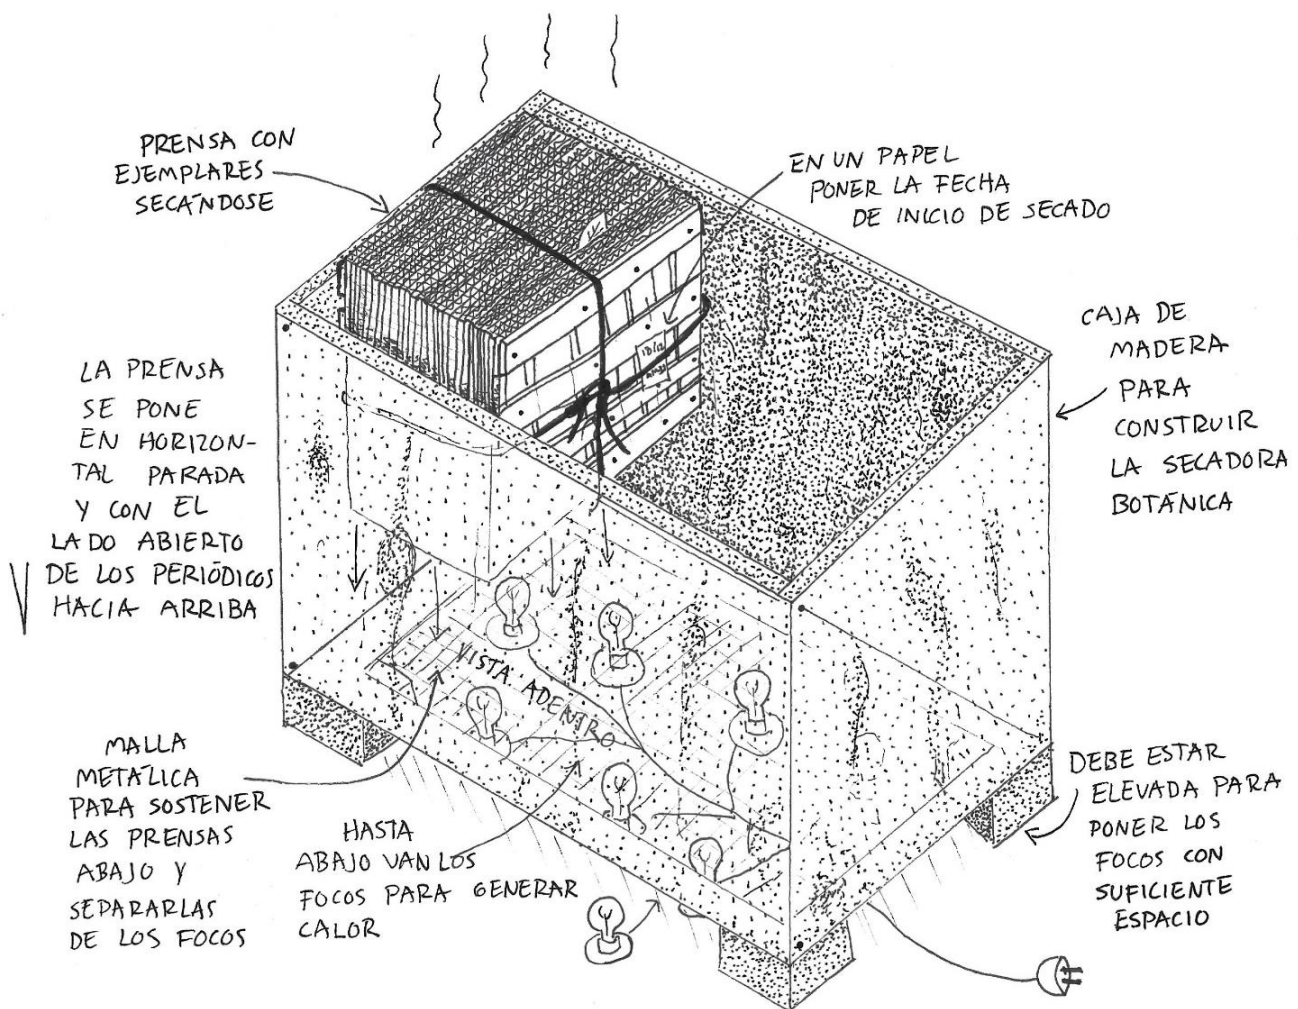 PRENSA CON
EJEMPLARES
SECÁNDOSE
EN UN PAPEL
PONER LA FECHA
DE INICIO DE SECADO
CAJA DE
MADERA
PARA
CONSTRUIR
LA SECADORA
BOTÁNICA
LA PRENSA
SE PONE
EN HORIZON-
TAL PARADA
Y CON EL
LADO ABIERTO
DE LOS PERIÓDICOS
HACIA ARRIBA
VISTA ADENTRO
MALLA
METÁLICA
PARA SOSTENER
LAS PRENSAS
ABAJO Y
SEPARARLAS
DE LOS FOCOS
HASTA
ABAJO VAN LOS
FOCOS PARA GENERAR
CALOR
DEBE ESTAR
ELEVADA PARA
PONER LOS
FOCOS CON
SUFICIENTE
ESPACIO